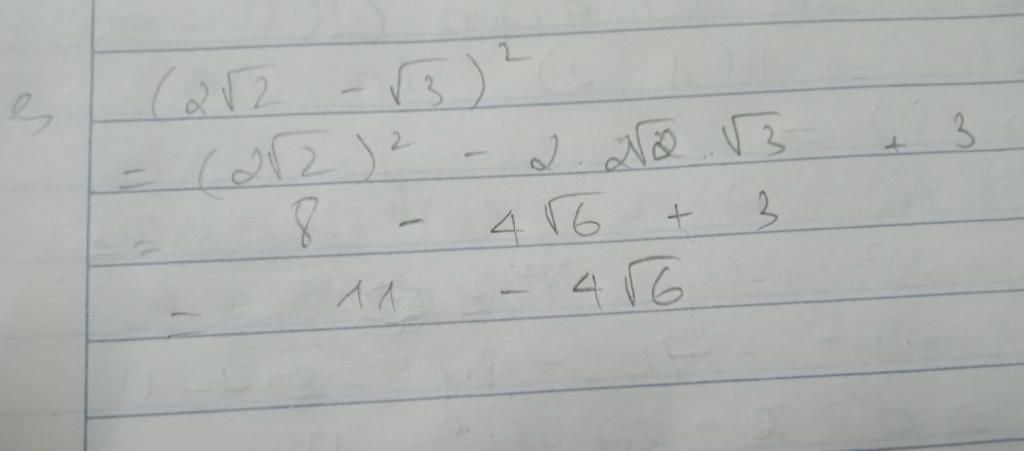 (2√2 - √3)²
= (2√2)² - 2 . 2√2 . √3 + 3
= 8 - 4√6 + 3
= 11 - 4√6